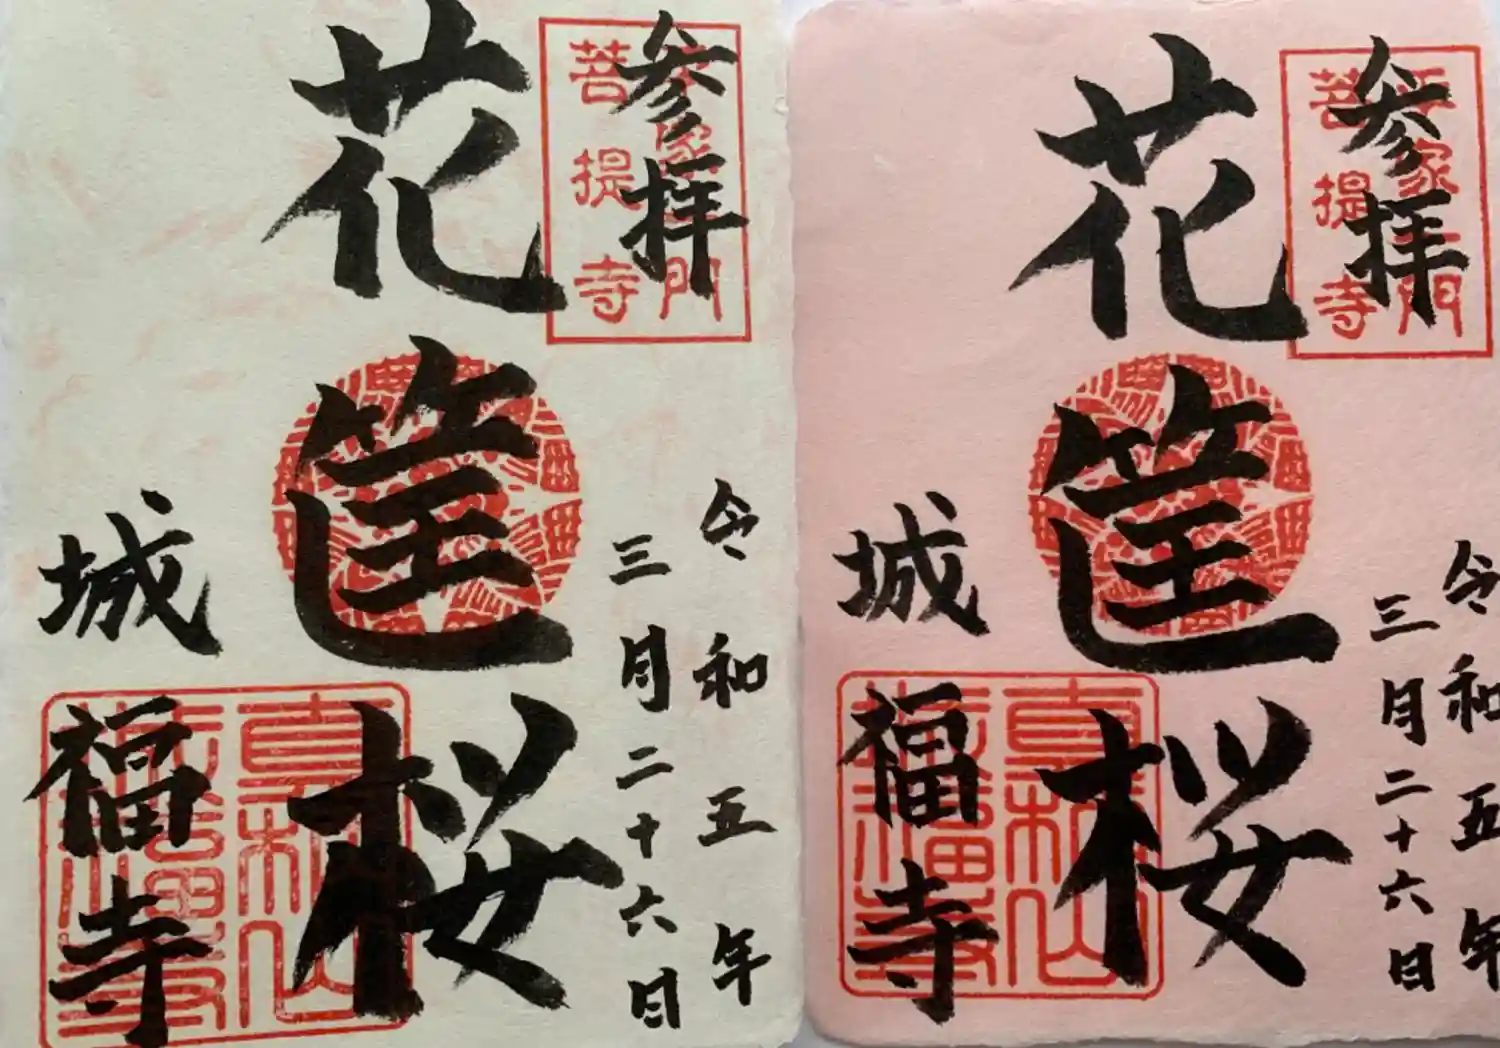 参拝
平家一門
菩提寺
花筐桜
令和五年
三月二十六日
城福寺
参拝
平家一門
菩提寺
花筐桜
令和五年
三月二十六日
城福寺